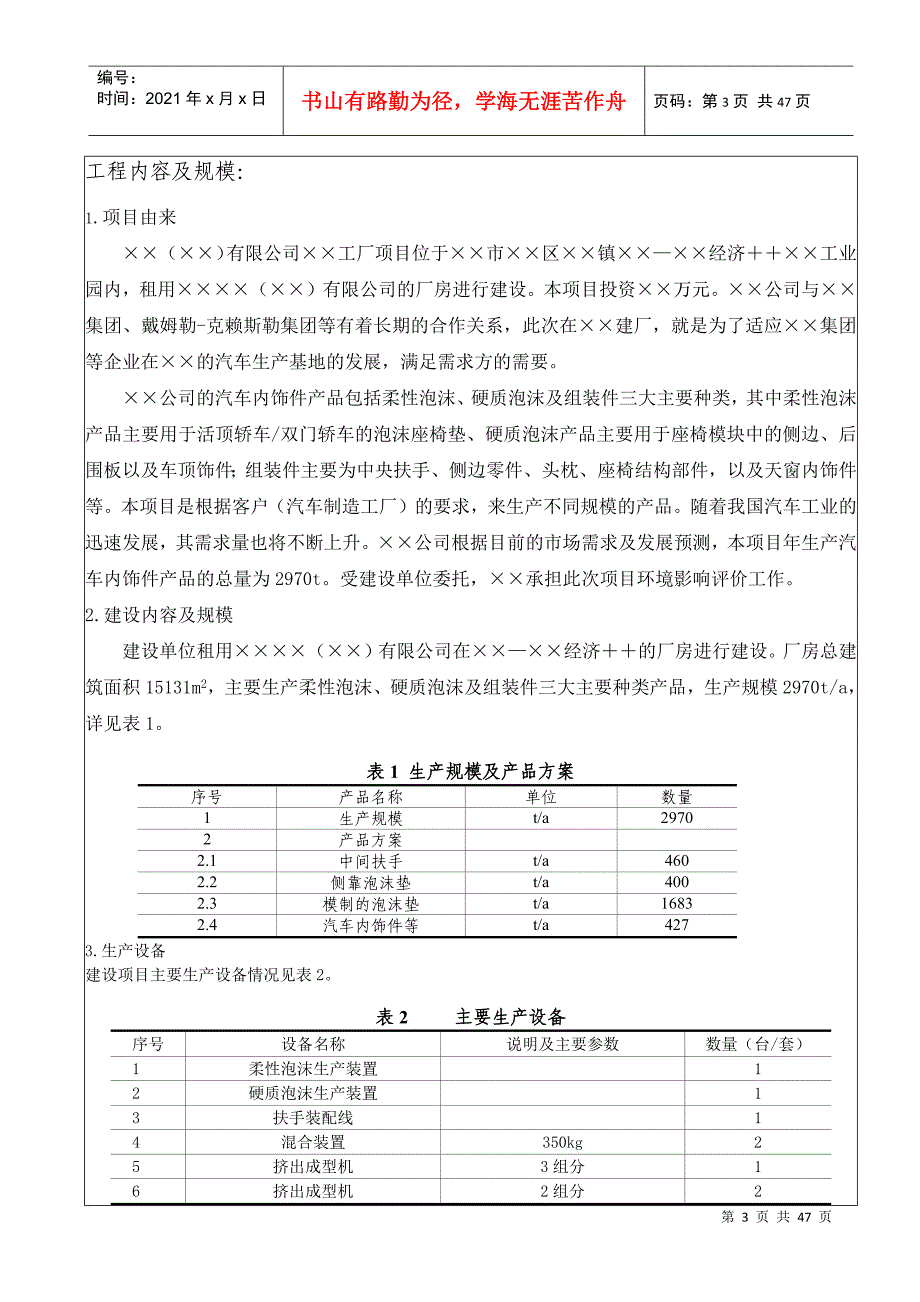 编号：
时间：2021年x月x日
书山有路勤为径，学海无涯苦作舟
页码：第3页 共47页
工程内容及规模：
1.项目由来
××（××）有限公司××工厂项目位于××市××区××镇××—××经济++××工业
园内，租用××××（××）有限公司的厂房进行建设。本项目投资××万元。××公司与××
集团、戴姆勒-克赖斯勒集团等有着长期的合作关系，此次在××建厂，就是为了适应××集团
等企业在××的汽车生产基地的发展，满足需求方的需要。
××公司的汽车内饰件产品包括柔性泡沫、硬质泡沫及组装件三大主要种类，其中柔性泡沫
产品主要用于活顶轿车/双门轿车的泡沫座椅垫、硬质泡沫产品主要用于座椅模块中的侧边、后
围板以及车顶饰件；组装件主要为中央扶手、侧边零件、头枕、座椅结构部件，以及天窗内饰件
等。本项目是根据客户（汽车制造工厂）的要求，来生产不同规模的产品。随着我国汽车工业的
迅速发展，其需求量也将不断上升。××公司根据目前的市场需求及发展预测，本项目年生产汽
车内饰件产品的总量为2970t。受建设单位委托，××承担此次项目环境影响评价工作。
2.建设内容及规模
建设单位租用××××（××）有限公司在××—××经济++的厂房进行建设。厂房总建
筑面积15131m²，主要生产柔性泡沫、硬质泡沫及组装件三大主要种类产品，生产规模2970t/a，
详见表1。
表1 生产规模及产品方案
序号 产品名称 单位 数量
1 生产规模 t/a 2970
2 产品方案
2.1 中间扶手 t/a 460
2.2 侧靠泡沫垫 t/a 400
2.3 模制的泡沫垫 t/a 1683
2.4 汽车内饰件等 t/a 427
3.生产设备
建设项目主要生产设备情况见表2。
表2 主要生产设备
序号 设备名称 说明及主要参数 数量（台/套）
1 柔性泡沫生产装置 1
2 硬质泡沫生产装置 1
3 扶手装配线 1
4 混合装置 350kg 2
5 挤出成型机 3组分 1
6 挤出成型机 2组分 2
第 3 页 共 47 页